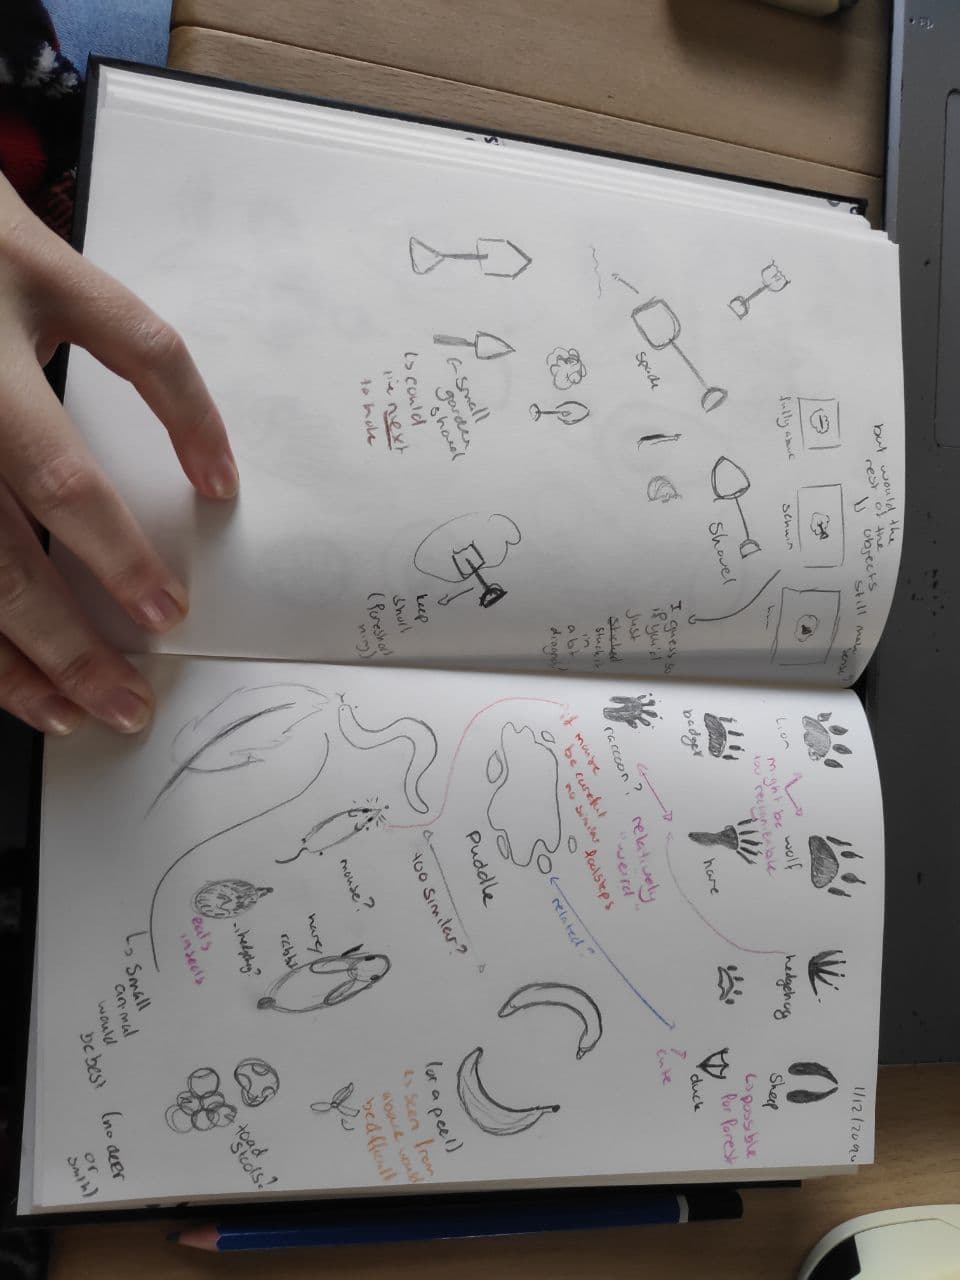 but would the
rest of the
objects
still make
sense?
fully above
schuin
Shovel
spade
I guess so
if you'd
just
sticked
stuck it
in
a bit
small
garden
shovel
↳ could
lie next
to hole
keep
short
(foreshort
ning)
1/12/2020
Lion
wolf
hedgehog
Sheep
might be
too recognizable
↳ possible
for forest
badger
hare
duck
cute
raccoon?
relatively
"weird"
if mouse
be careful
no similar footsteps
related?
puddle
too similar?
(or a peel)
↳ seen from
above would
be difficult
mouse?
hare/
rabbit
hedgehog?
eats
insects
toad
stools?
↳ small
animal
would
be best
(no deer
or
smth)